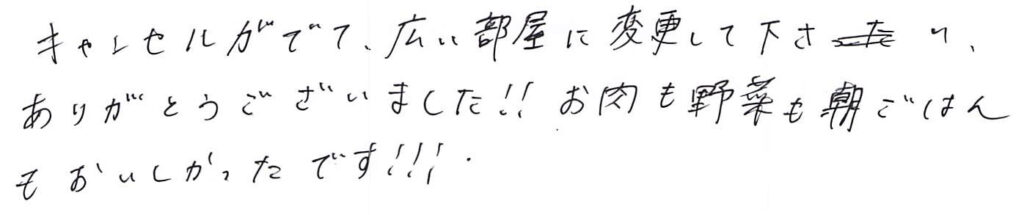 キャンセルがでて、広い部屋に変更して下さり、
ありがとうございました!! お肉も野菜も朝ごはん
もおいしかったです!!!